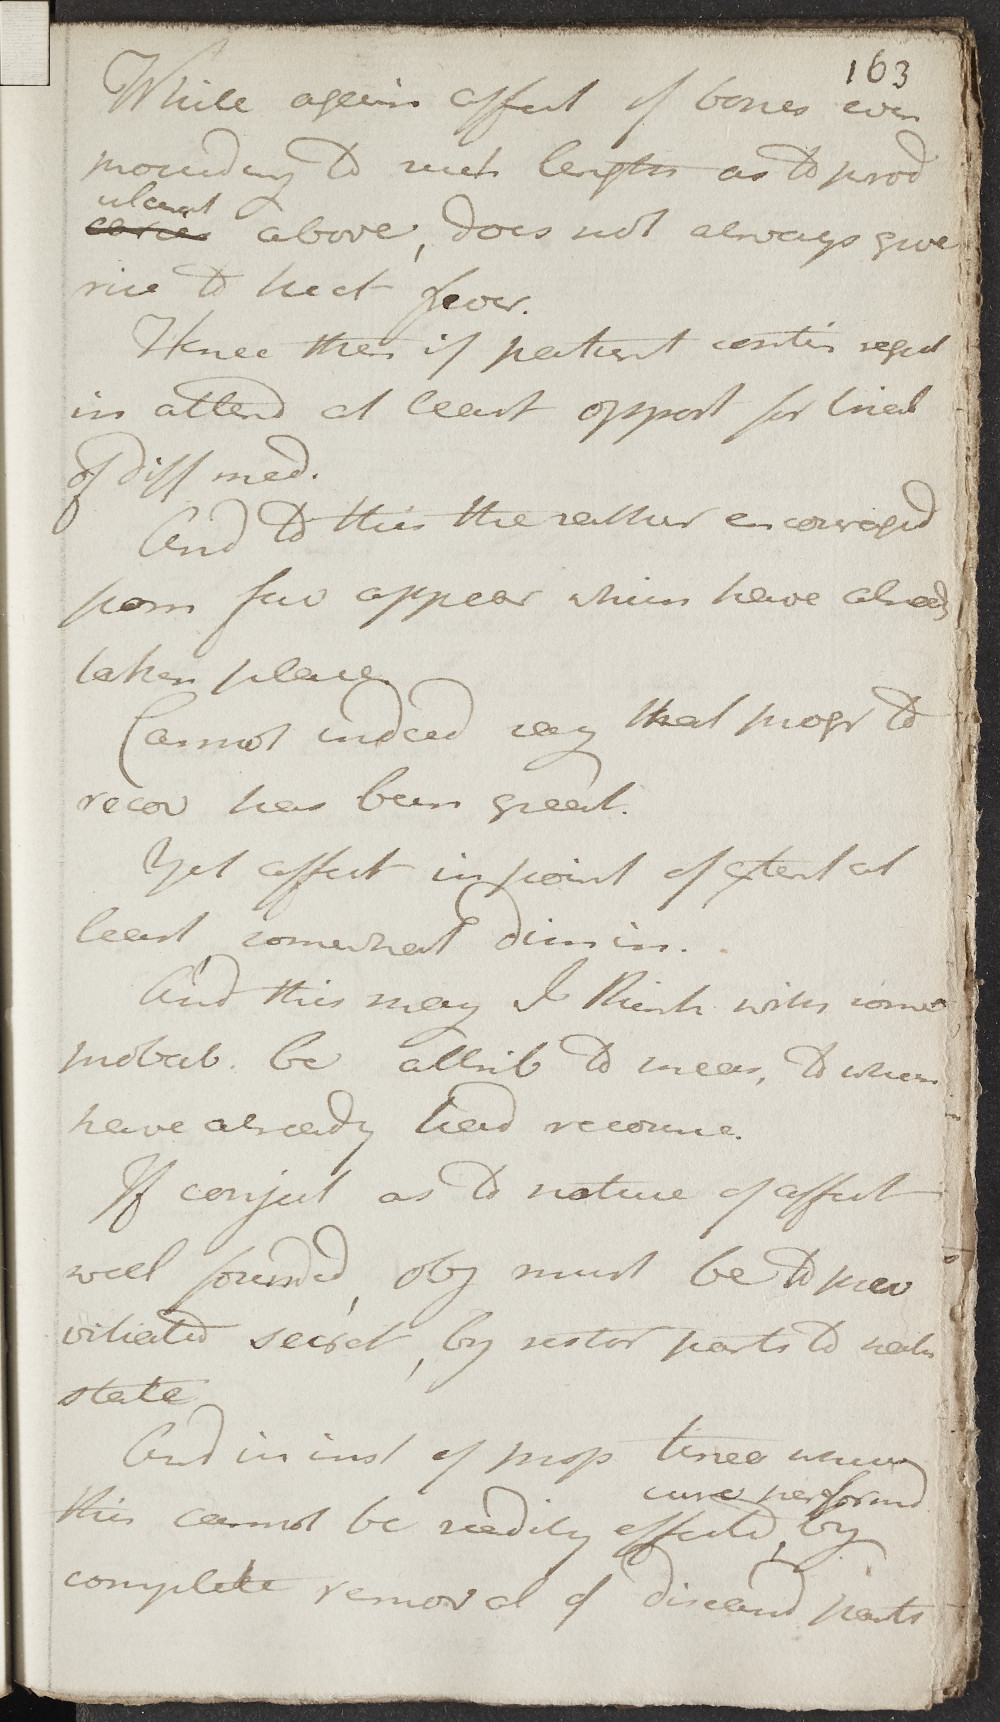 163
While again affect of bones even
proceeding to such lengths as to prod
ulcerat
caries above, does not always give
rise to hect fever.
Hence then if patient contin regul
in attend at least opport for trial
of diff med.
And to this the rather encouraged
from few appear which have already
taken place
Cannot indeed say that progr to
recov has been great.
Yet affect in point of extent at
least somewhat dimin.
And this may I think with some
probab. be attrib to meas, to which
have already had recourse.
If conject as to nature of affect
well founded, obj must be to prev
vitiated secret, by restor parts to heal
state
And in inst of prop tinea where
cure performd
this cannot be readily effected, by
complete removal of diseased parts